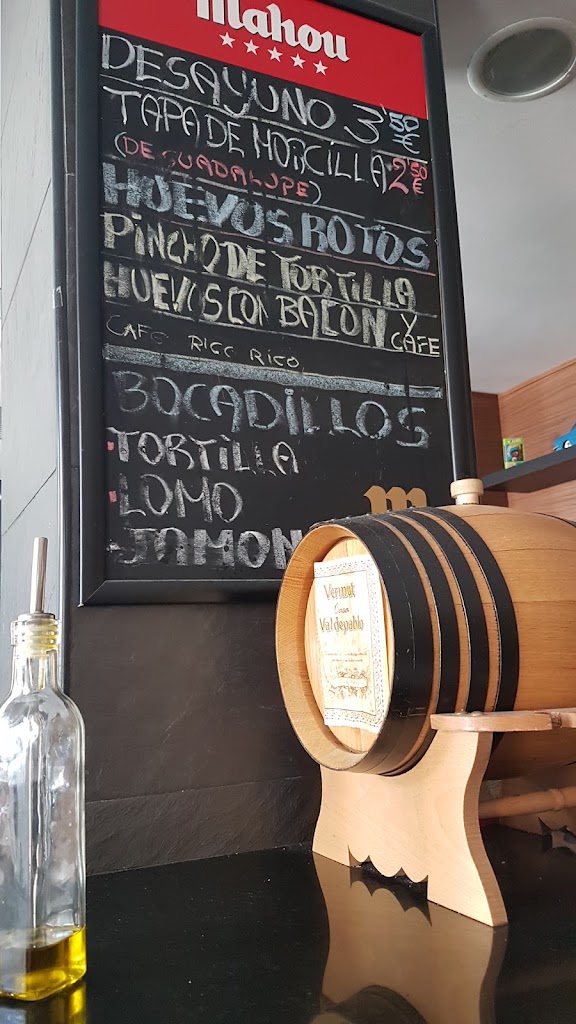 mahou
DESAYUNO 3'50 €
TAPA DE MORCILLA 2'50 €
(DE GUADALUPE)
HUEVOS ROTOS
PINCHO DE TORTILLA
HUEVOS CON BACON Y CAFE
CAFE RICO RICO
BOCADILLOS
-TORTILLA
-LOMO
-JAMON
m
Vermut
Casa
Valdepablo